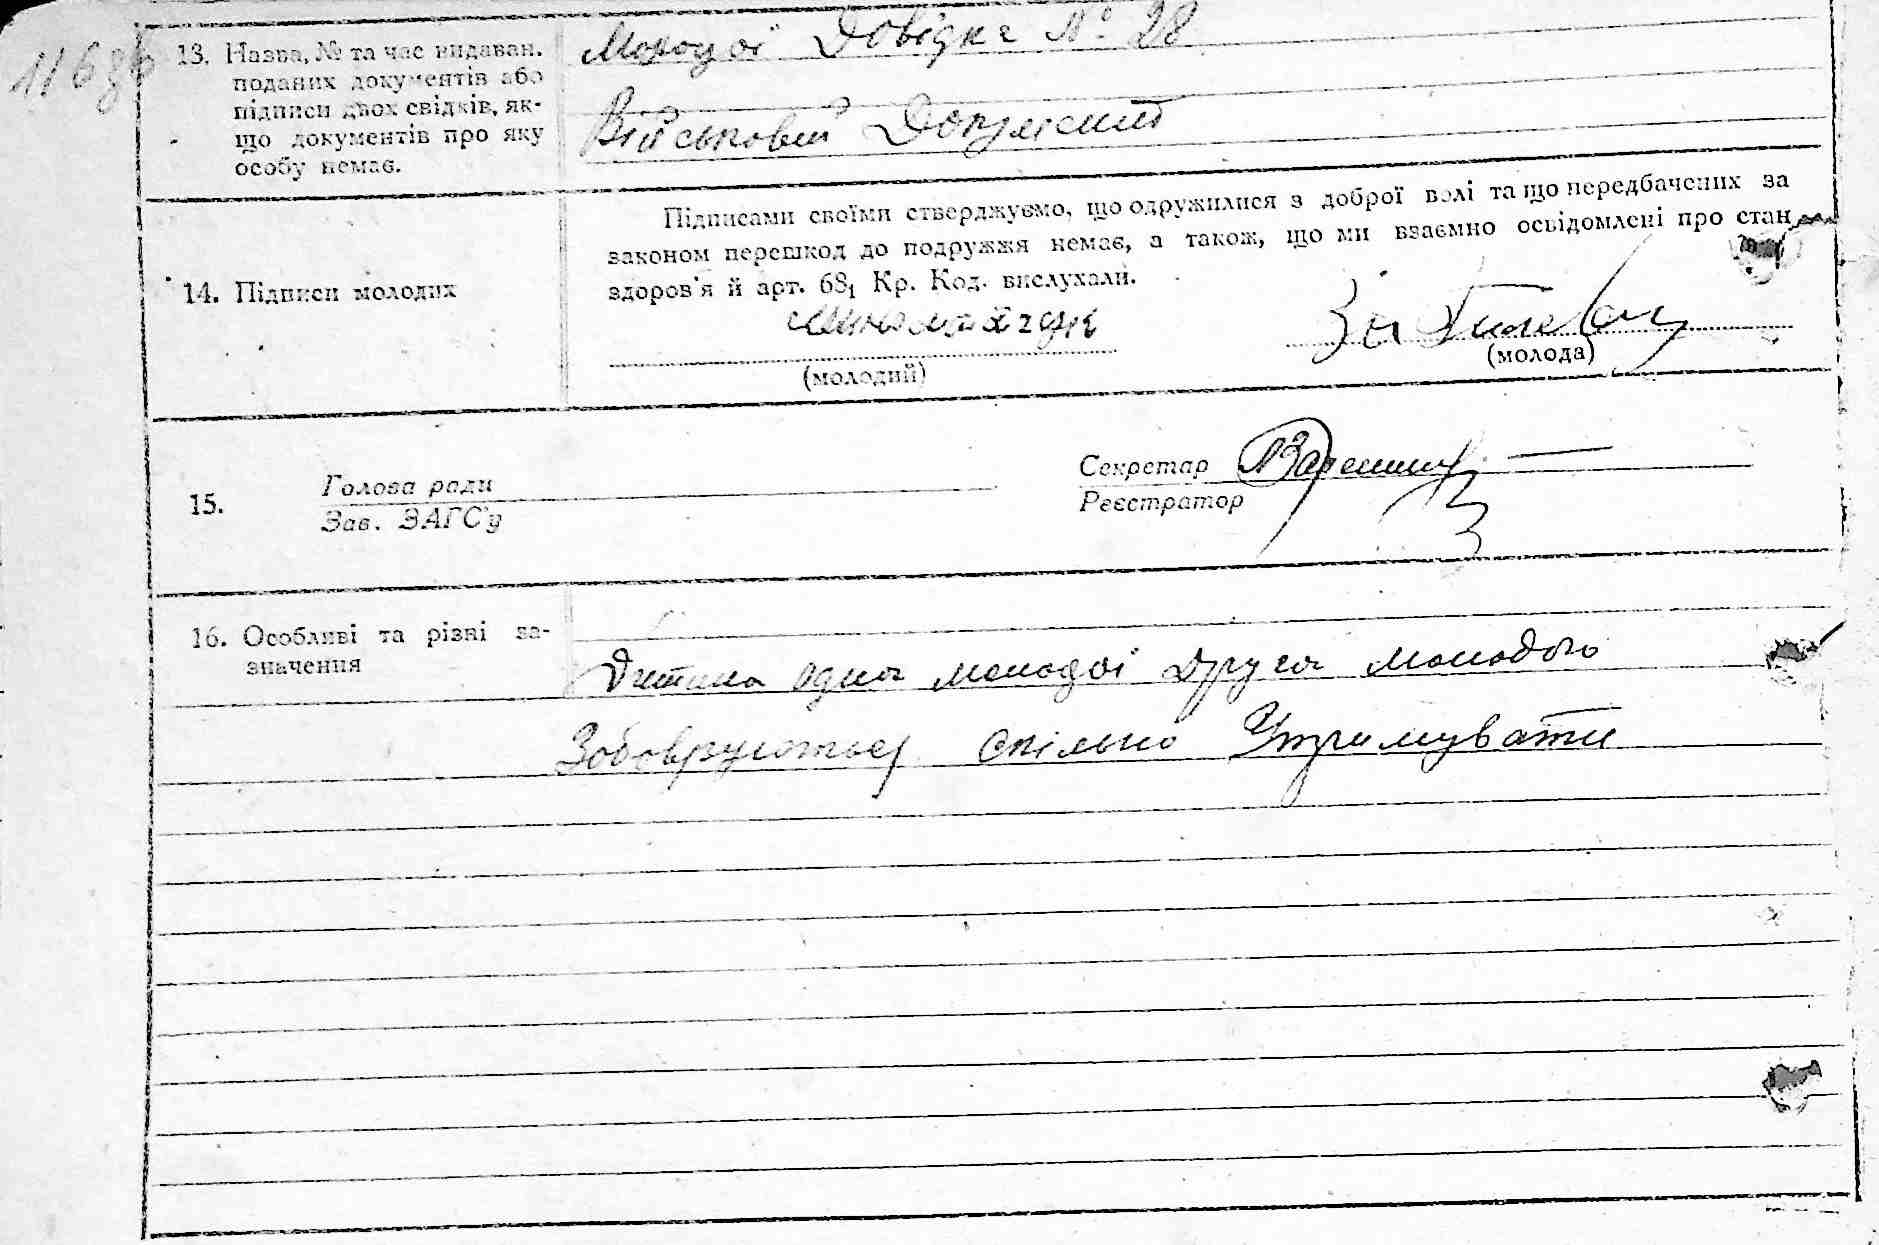 13. Назва, № та час видаван. поданих документів або підписи двох свідків, як-що документів про яку особу немає.
Молодої Довідка № 28
Військовий Документ
Підписами своїми стверджуємо, що одружилися з доброї волі та що передбачених за
законом перешкод до подружжя немає, а також, що ми взаємно освідомлені про стан
здоров'я й арт. 68₁ Кр. Код. вислухали.
14. Підписи молодих
(молодий)
(молода)
15.
Голова ради
Зав. ЗАГС'у
Секретар
Реєстратор
16. Особливі та різні за-
значення
Дитина одна молодої Друга молодого
Зобовязуються спільно Утримувати